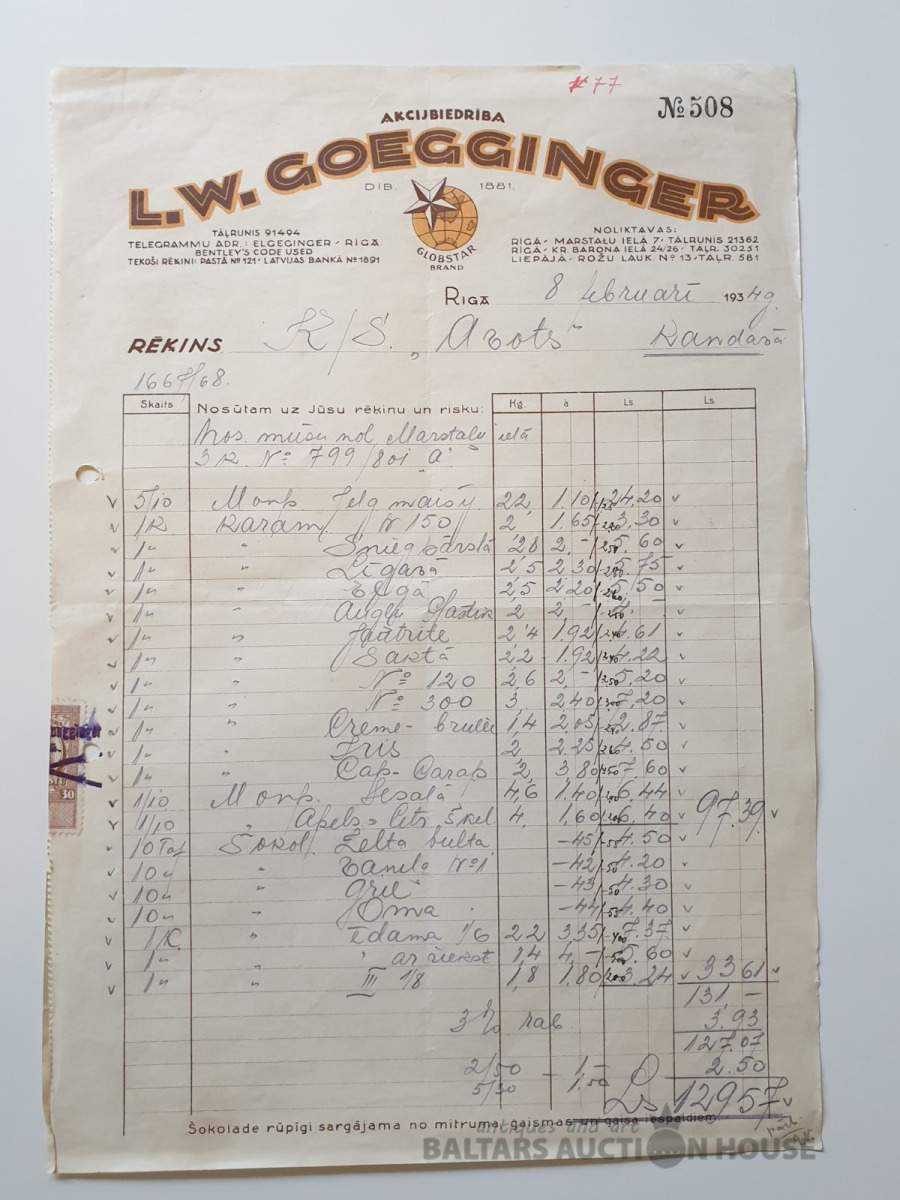 77
№ 508
AKCIJBIEDRĪBA
L.W. GOEGGINGER
DIB. 1881.
GLOBSTAR
BRAND
TĀLRUNIS 91494
TELEGRAMMU ADR.: ELGEGINGER - RĪGĀ
BENTLEY'S CODE USED
TEKOŠI RĒĶINI: PASTĀ № 121 - LATVIJAS BANKĀ № 1891
NOLIKTAVAS:
RĪGĀ - MARSTAĻU IELĀ 7 - TĀLRUNIS 21362
RĪGĀ - KR. BARONA IELĀ 24/26 - TĀLR. 30251
LIEPĀJĀ - ROŽU LAUK. № 13 - TĀLR. 581
RĪGĀ 8 februarī 1934 g
RĒĶINS K/S. „Avots" Kandavā
Skaits Nosūtam uz Jūsu rēķinu un risku: Kg. à Ls Ls
mūsu nol. Marstaļu ielā
№ 799/801 "A"
5/10 Monp. maisij. 22, 1.10 24.20
1 K Karam. № 150 2, 1.65 3.30
1 " " 2,8 2,- 5.60
1 " " Līgavā 2,5 2.30 5.75
1 " " 2,5 2.20 5.50
1 " " 2 2,- 4.-
1 " " 2,4 1.92 4.61
1 " " Saktā 2,2 1.92 4.22
1 " " № 120 2,6 2,- 5.20
1 " " № 300 3, 2.40 7.20
1 " " Creme-brulée 1,4 2.05 2.87
1 " " Iris 2 2.25 4.50
1 " " Cap-Carap 2, 3.80 7.60
1/10 Monp. 4,6 1.40 6.44
1/10 " Apels-Citr. 4, 1.60 6.40 97.39
10 Taf Šokol. Zelta bulta -45 4.50
10 " " № 1 -42 4.20
10 " " -43 4.30
10 " " Oma -44 4.40
1 K. " ēdama 1/6 2,2 3.35 7.37
1 " " ar riekst 1,4 4,- 5.60
1 " " III 1/8 1,8 1.80 3.24 33 61
131 -
3% rab. 3.93
127.07
2/50 2.50
5/30 - 1,50
Ls 129 57
Šokolade rūpīgi sargājama no mitruma, gaismas un gaisa iespaidiem
30
antiques and art
BALTARS AUCTION HOUSE